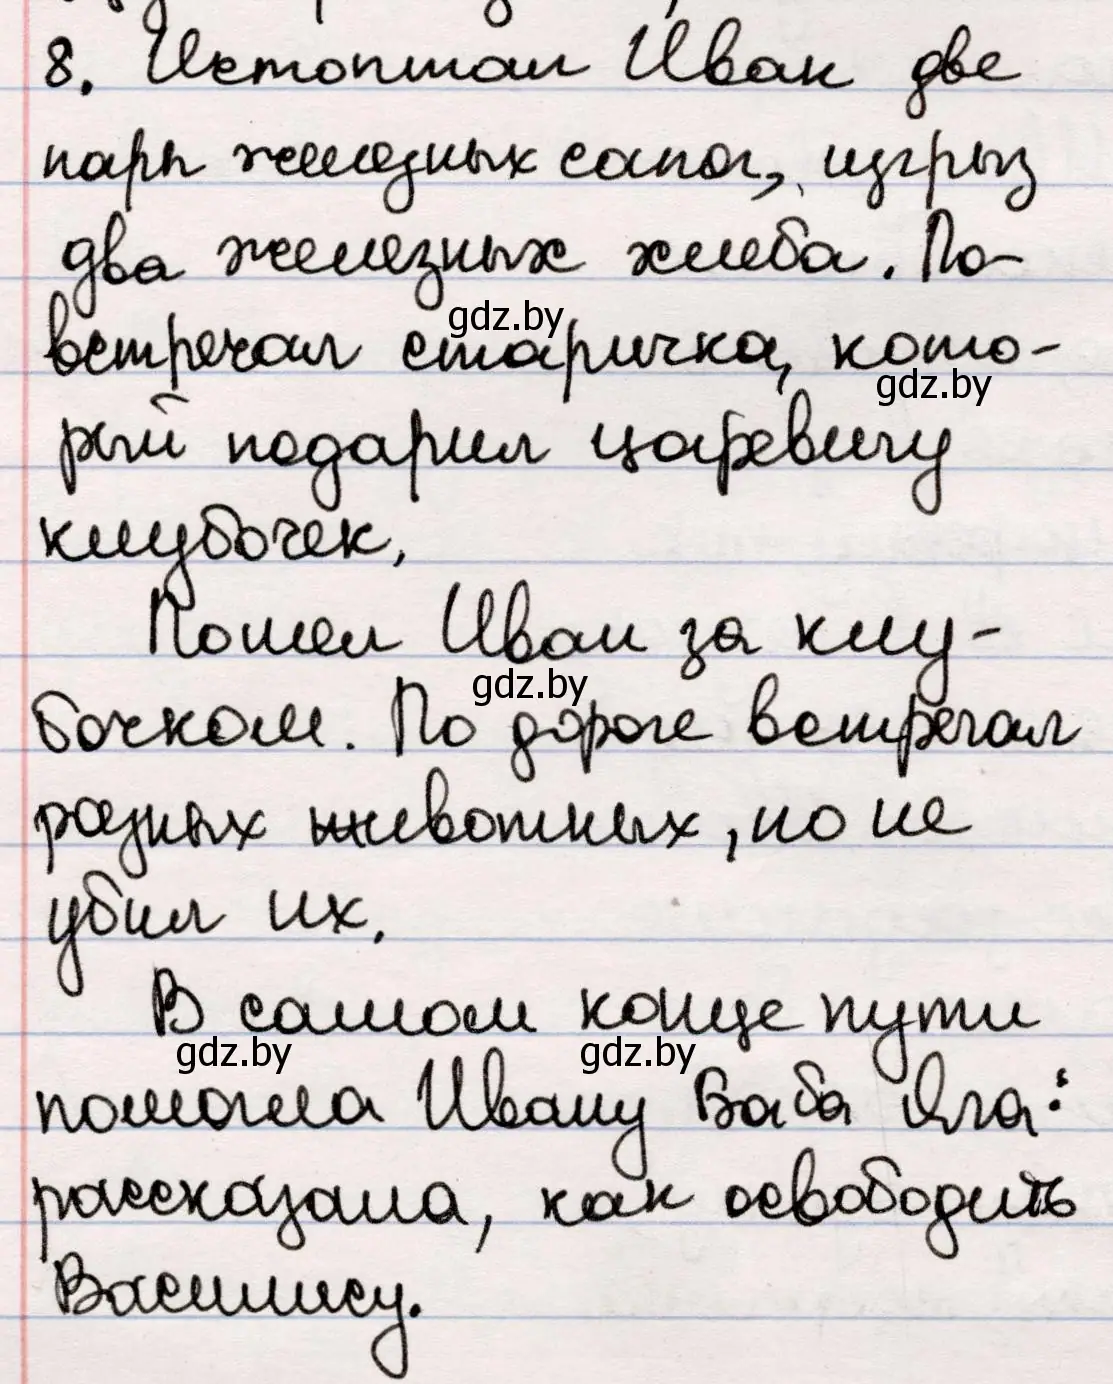 8. Истоптал Иван две
пары железных сапог, изгрыз
два железных хлеба. По-
встречал старичка, кото-
рый подарил царевичу
клубочек.
Пошел Иван за клу-
бочком. По дороге встречал
разных животных, но не
убил их.
В самом конце пути
помогла Ивану Баба Яга:
рассказала, как освободить
Василису.
gdz.by
gdz.by
gdz.by
gdz.by
gdz.by